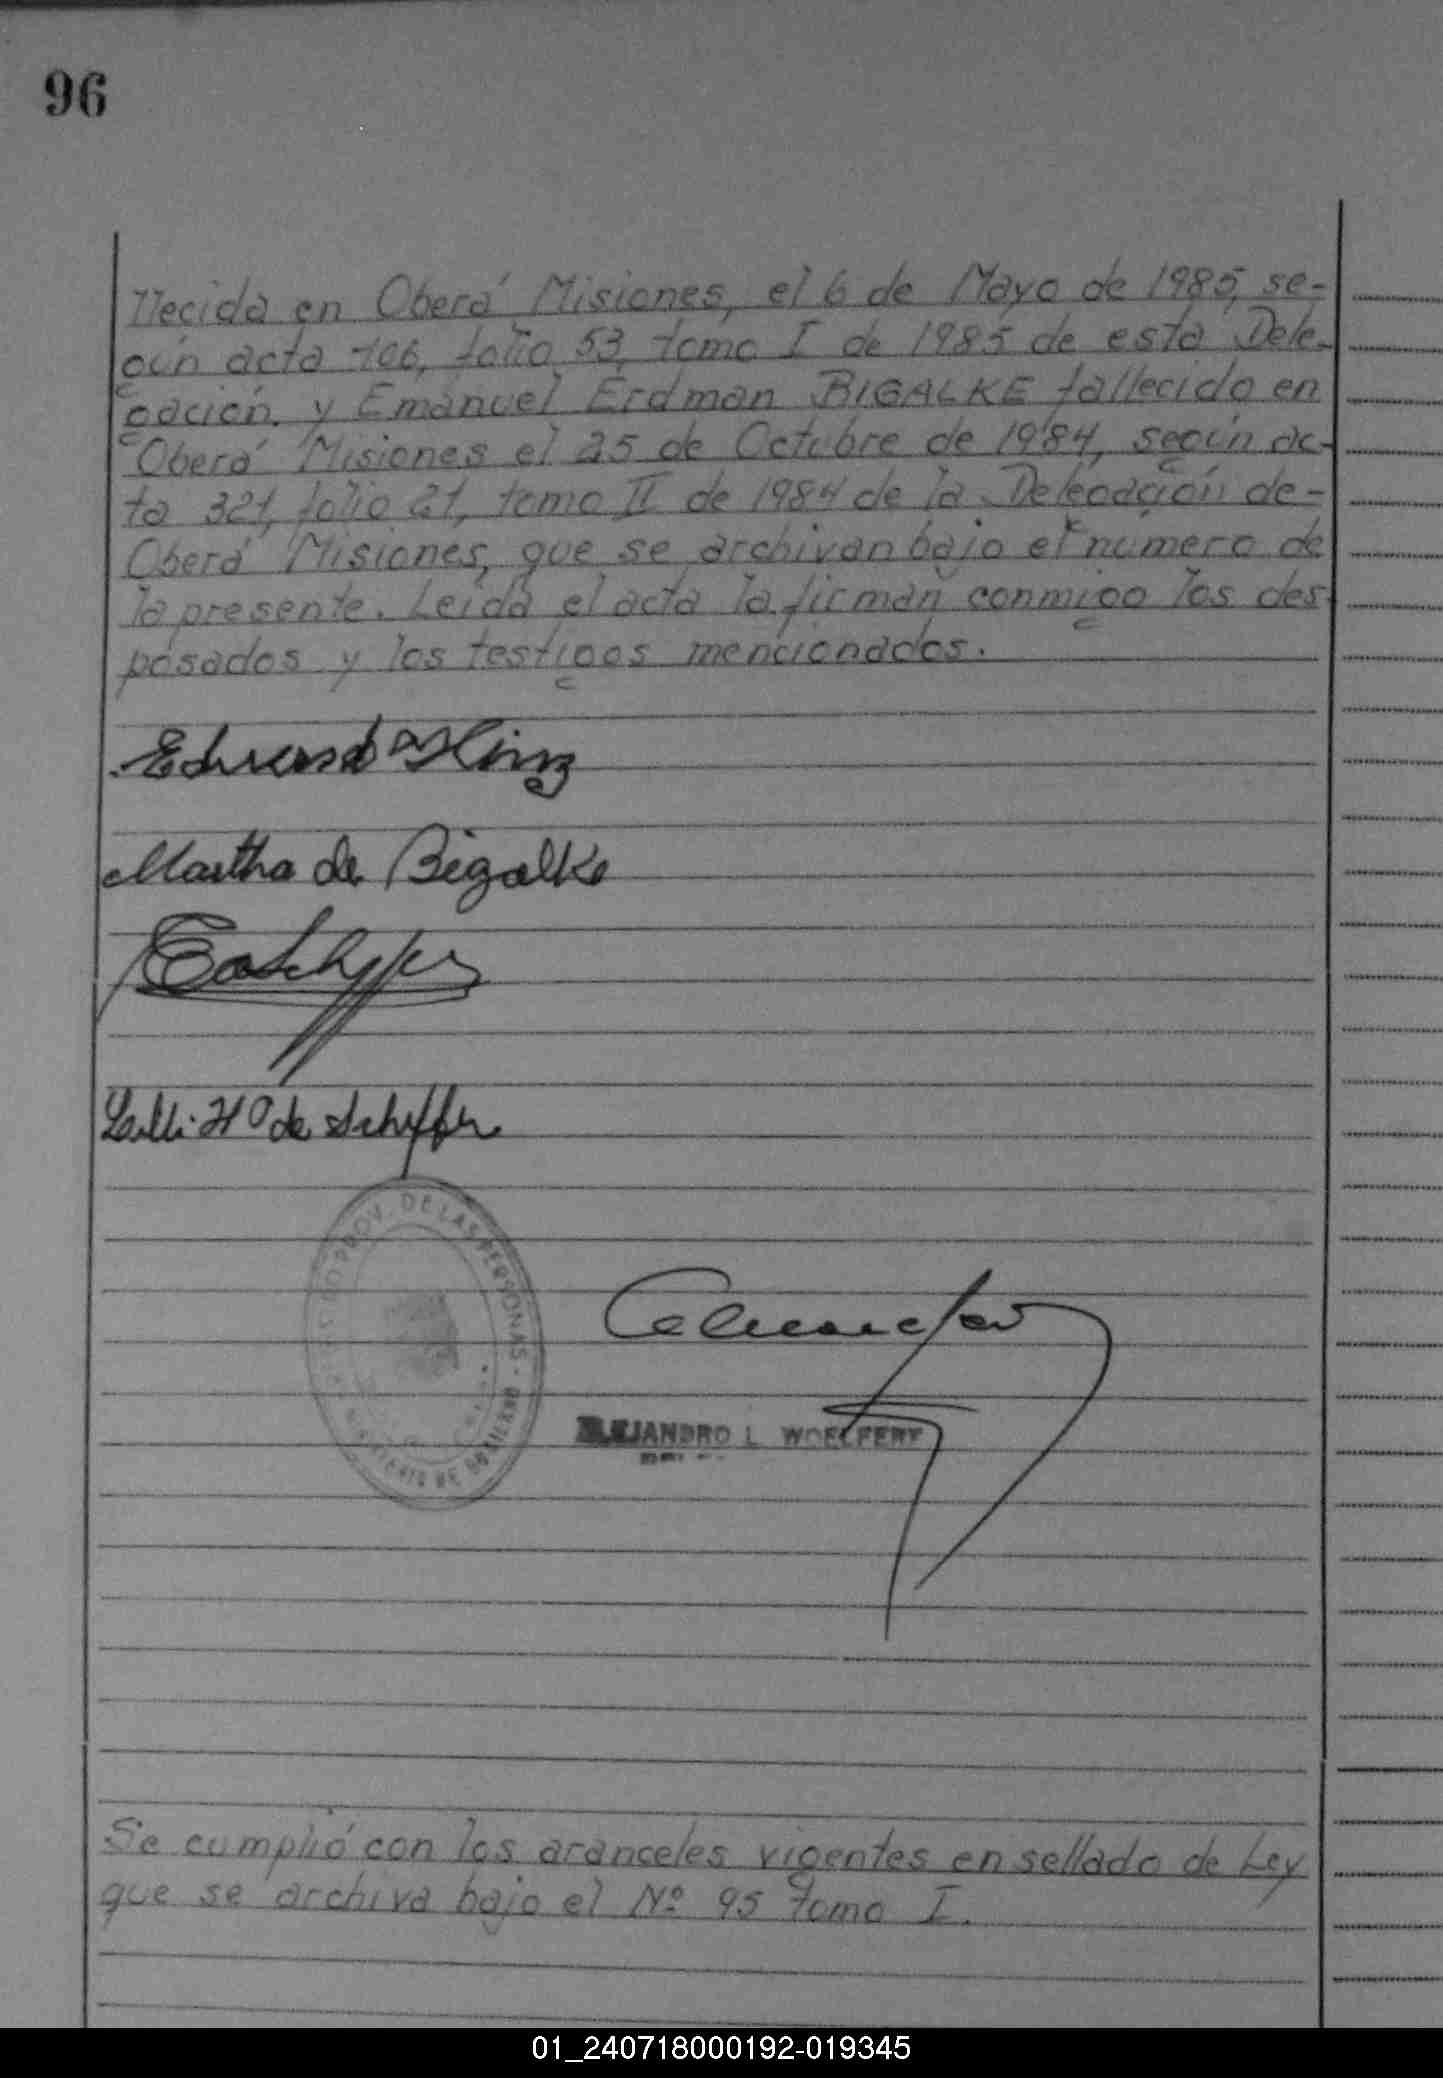 96
llecida en Oberá Misiones, el 6 de Mayo de 1985, se-
gún acta 106, folio 53, tomo I de 1985 de esta Dele-
gación. y Emanuel Erdman BIGALKE fallecido en
Oberá Misiones el 25 de Octubre de 1984, según ac-
ta 321, folio 21, tomo II de 1984 de la Delegación de-
Oberá Misiones, que se archivan bajo el número de
la presente. Leida el acta la firman conmigo los des
posados y los testigos mencionados.
Martha de Bigalke
Lilli H de Schiffer
PROV. DE LAS PERSONAS - MINISTERIO DE GOBIERNO
ALEJANDRO L. WOELFERT
Se cumplió con los aranceles vigentes en sellado de Ley
que se archiva bajo el Nº 95 tomo I.
01_240718000192-019345